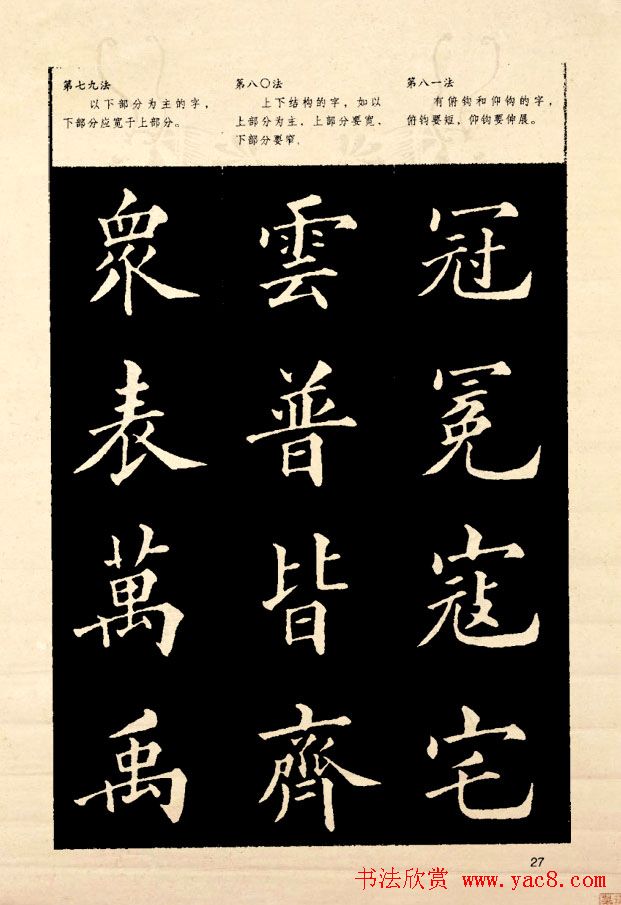 第七九法
以下部分为主的字，
下部分应宽于上部分。
第八〇法
上下结构的字，如以
上部分为主，上部分要宽，
下部分要窄，
第八一法
有俯钩和仰钩的字，
俯钩要短，仰钩要伸展。
眾
表
萬
禹
雲
普
皆
齊
冠
冕
寇
宅
27
书法欣赏 www.yac8.com